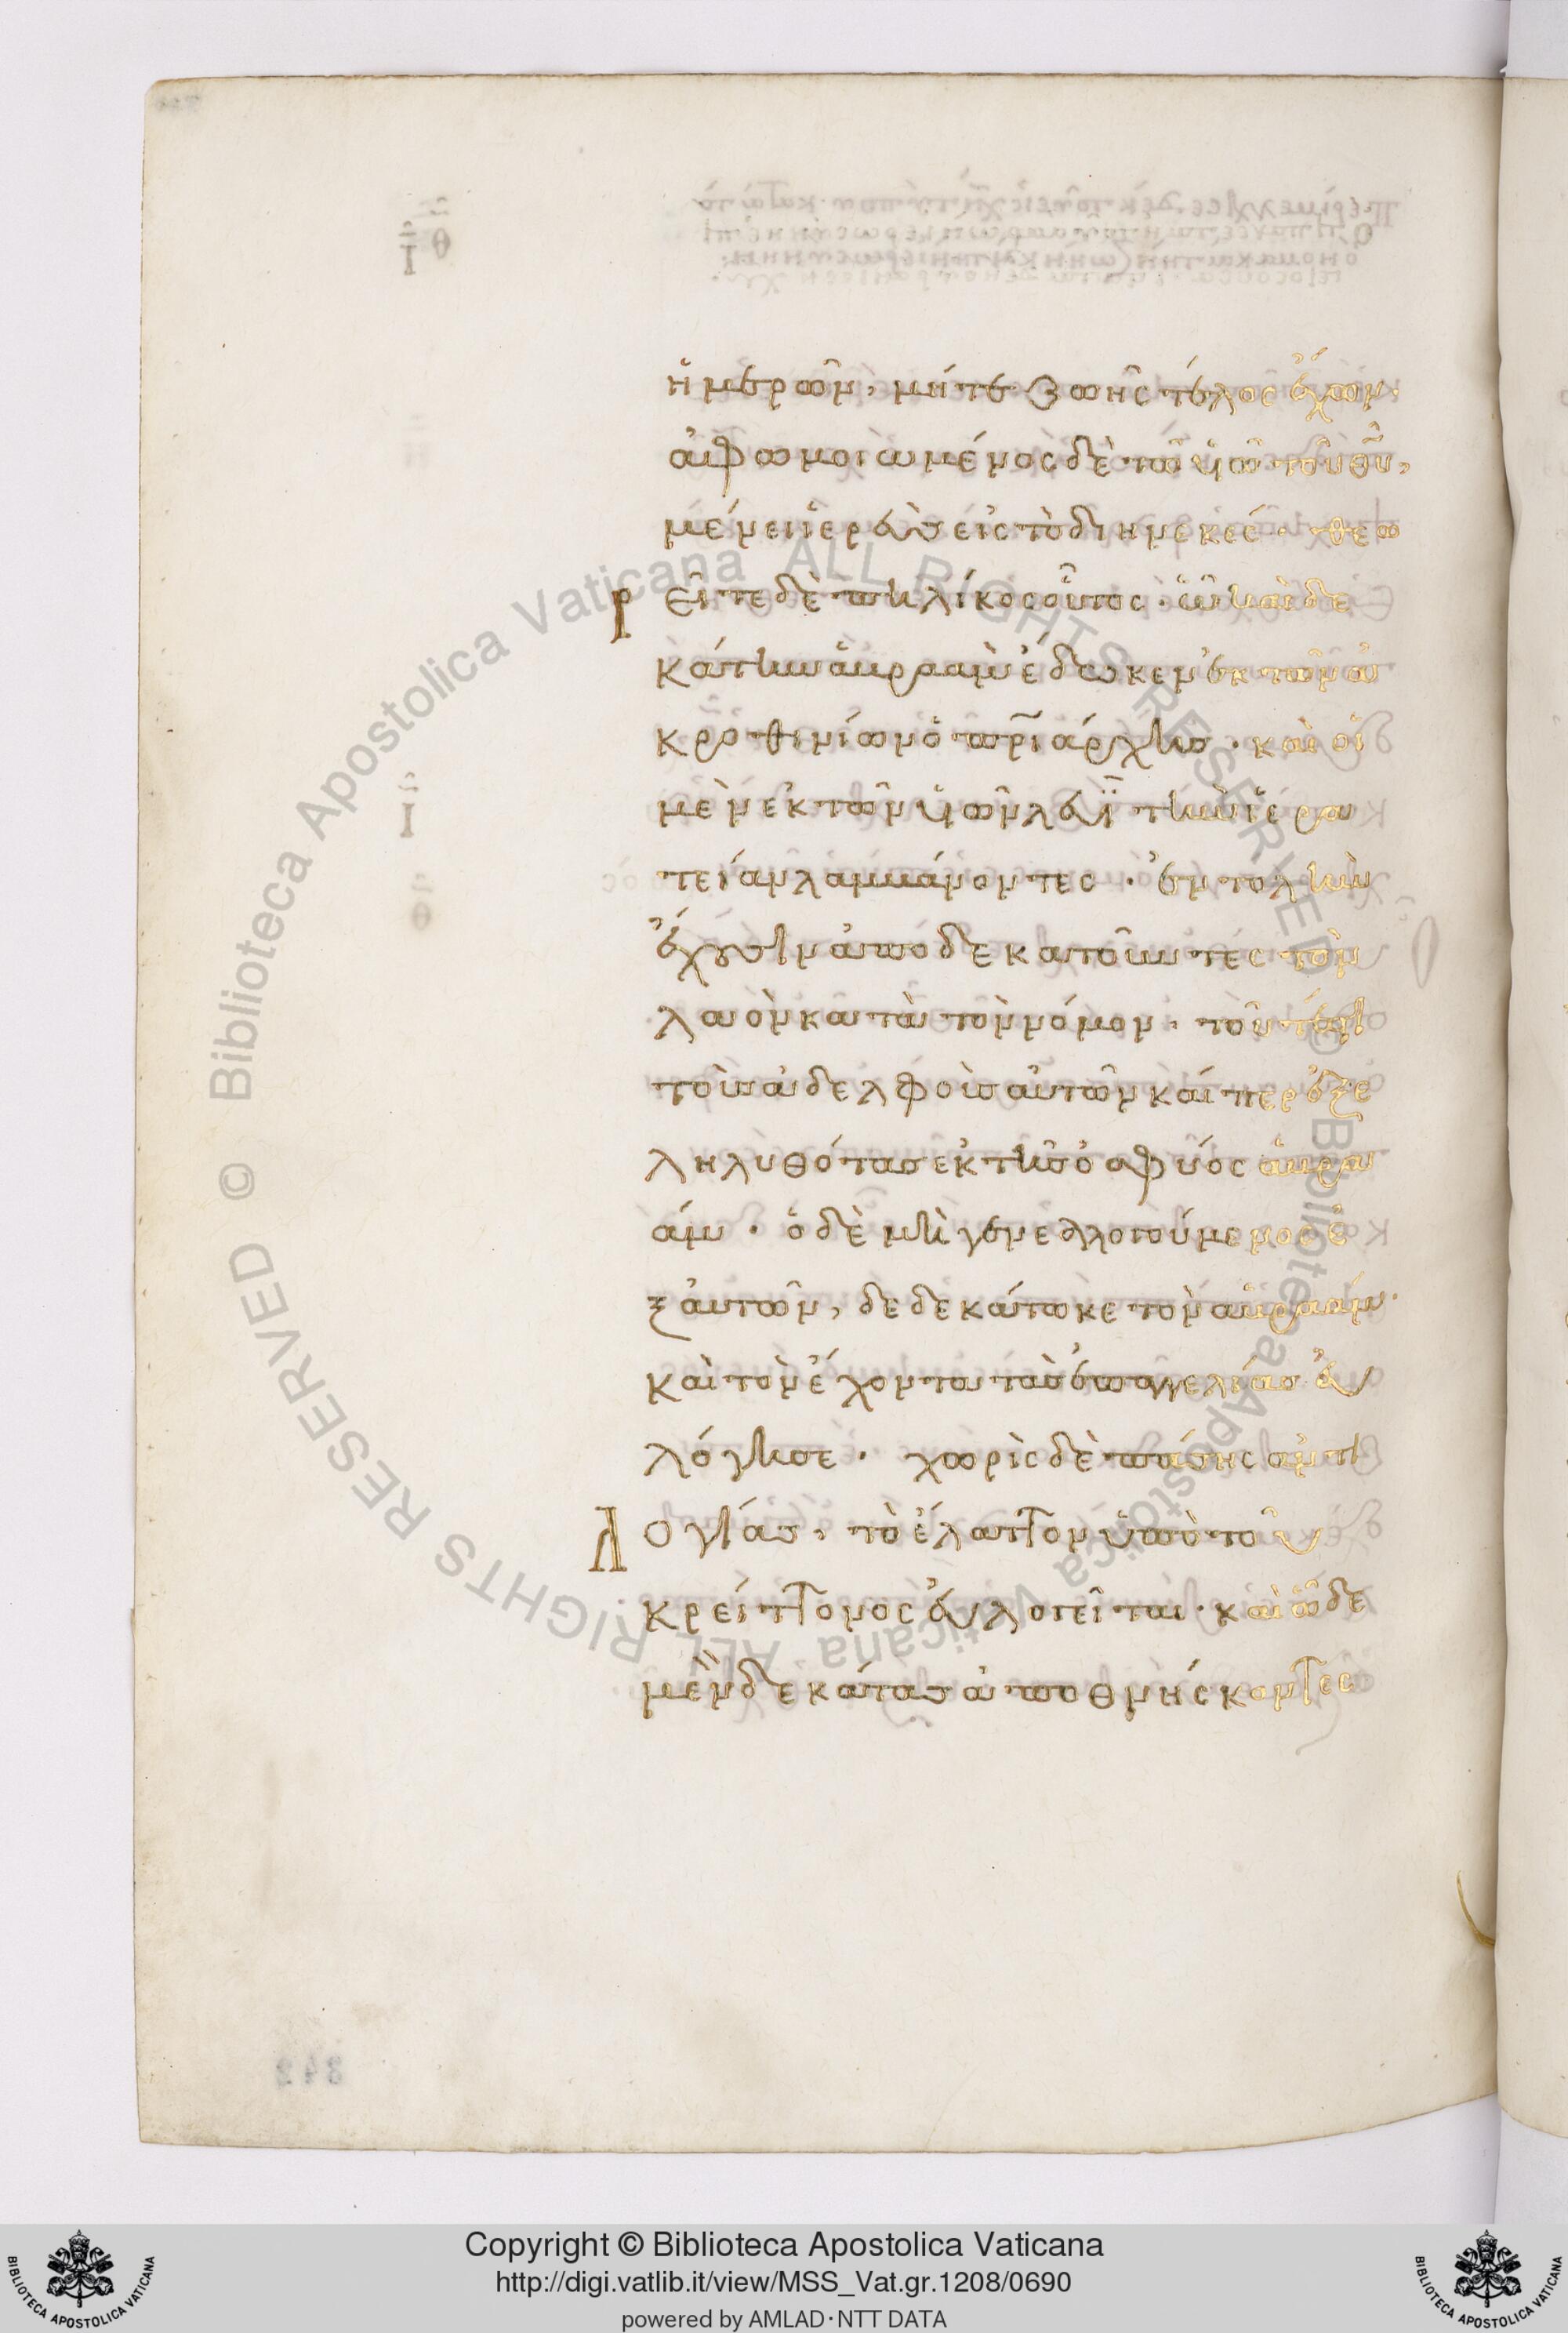 ἡμερῶν, μήτε ζωῆς τέλος ἔχων·
ἀφωμοιωμένος δὲ τῶ υἱῶ τοῦ θυ,
μένει ἱερεὺς εἰς τὸ διηνεκές· θεω
ρεῖτε δὲ πηλίκος οὗτος· ὧ καὶ δε
κάτην ἀβραὰμ ἔδωκεν ἐκ τῶν ἀ
κροθινίων ὁ πριάρχης· καὶ οἱ
μὲν ἐκ τῶν υἱῶν λευῒ τὴν ἱερα
τείαν λαμβάνοντες· ἐντολὴν
ἔχουσιν ἀποδεκατοῦν τες τὸν
λαὸν κατὰ τὸν νόμον· τοῦτέστι
τοὺς ἀδελφοὺς αὐτῶν καίπερ ἐξε
ληλυθότας ἐκ τῆς ὀσφύος ἀβρα
άμ· ὁ δὲ μὴ γενεαλογούμενος ἐ
ξαὐτῶν, δεδεκάτωκε τὸν ἀβραάμ·
καὶ τὸν ἔχοντα τὰς ἐπαγγελίας εὐ
λόγησε· χωρὶς δὲ πάσης ἀντι
λογίας, τὸ ἔλαττον ὑπὸ τοῦ
κρείττονος εὐλογεῖται· καὶ ὧδε
μὲν δεκάτας ἀποθνήσκοντες
Copyright © Biblioteca Apostolica Vaticana
http://digi.vatlib.it/view/MSS_Vat.gr.1208/0690
powered by AMLAD·NTT DATA
© Biblioteca Apostolica Vaticana ALL RIGHTS RESERVED
© Biblioteca Apostolica Vaticana ALL RIGHTS RESERVED
BIBLIOTECA APOSTOLICA VATICANA
BIBLIOTECA APOSTOLICA VATICANA